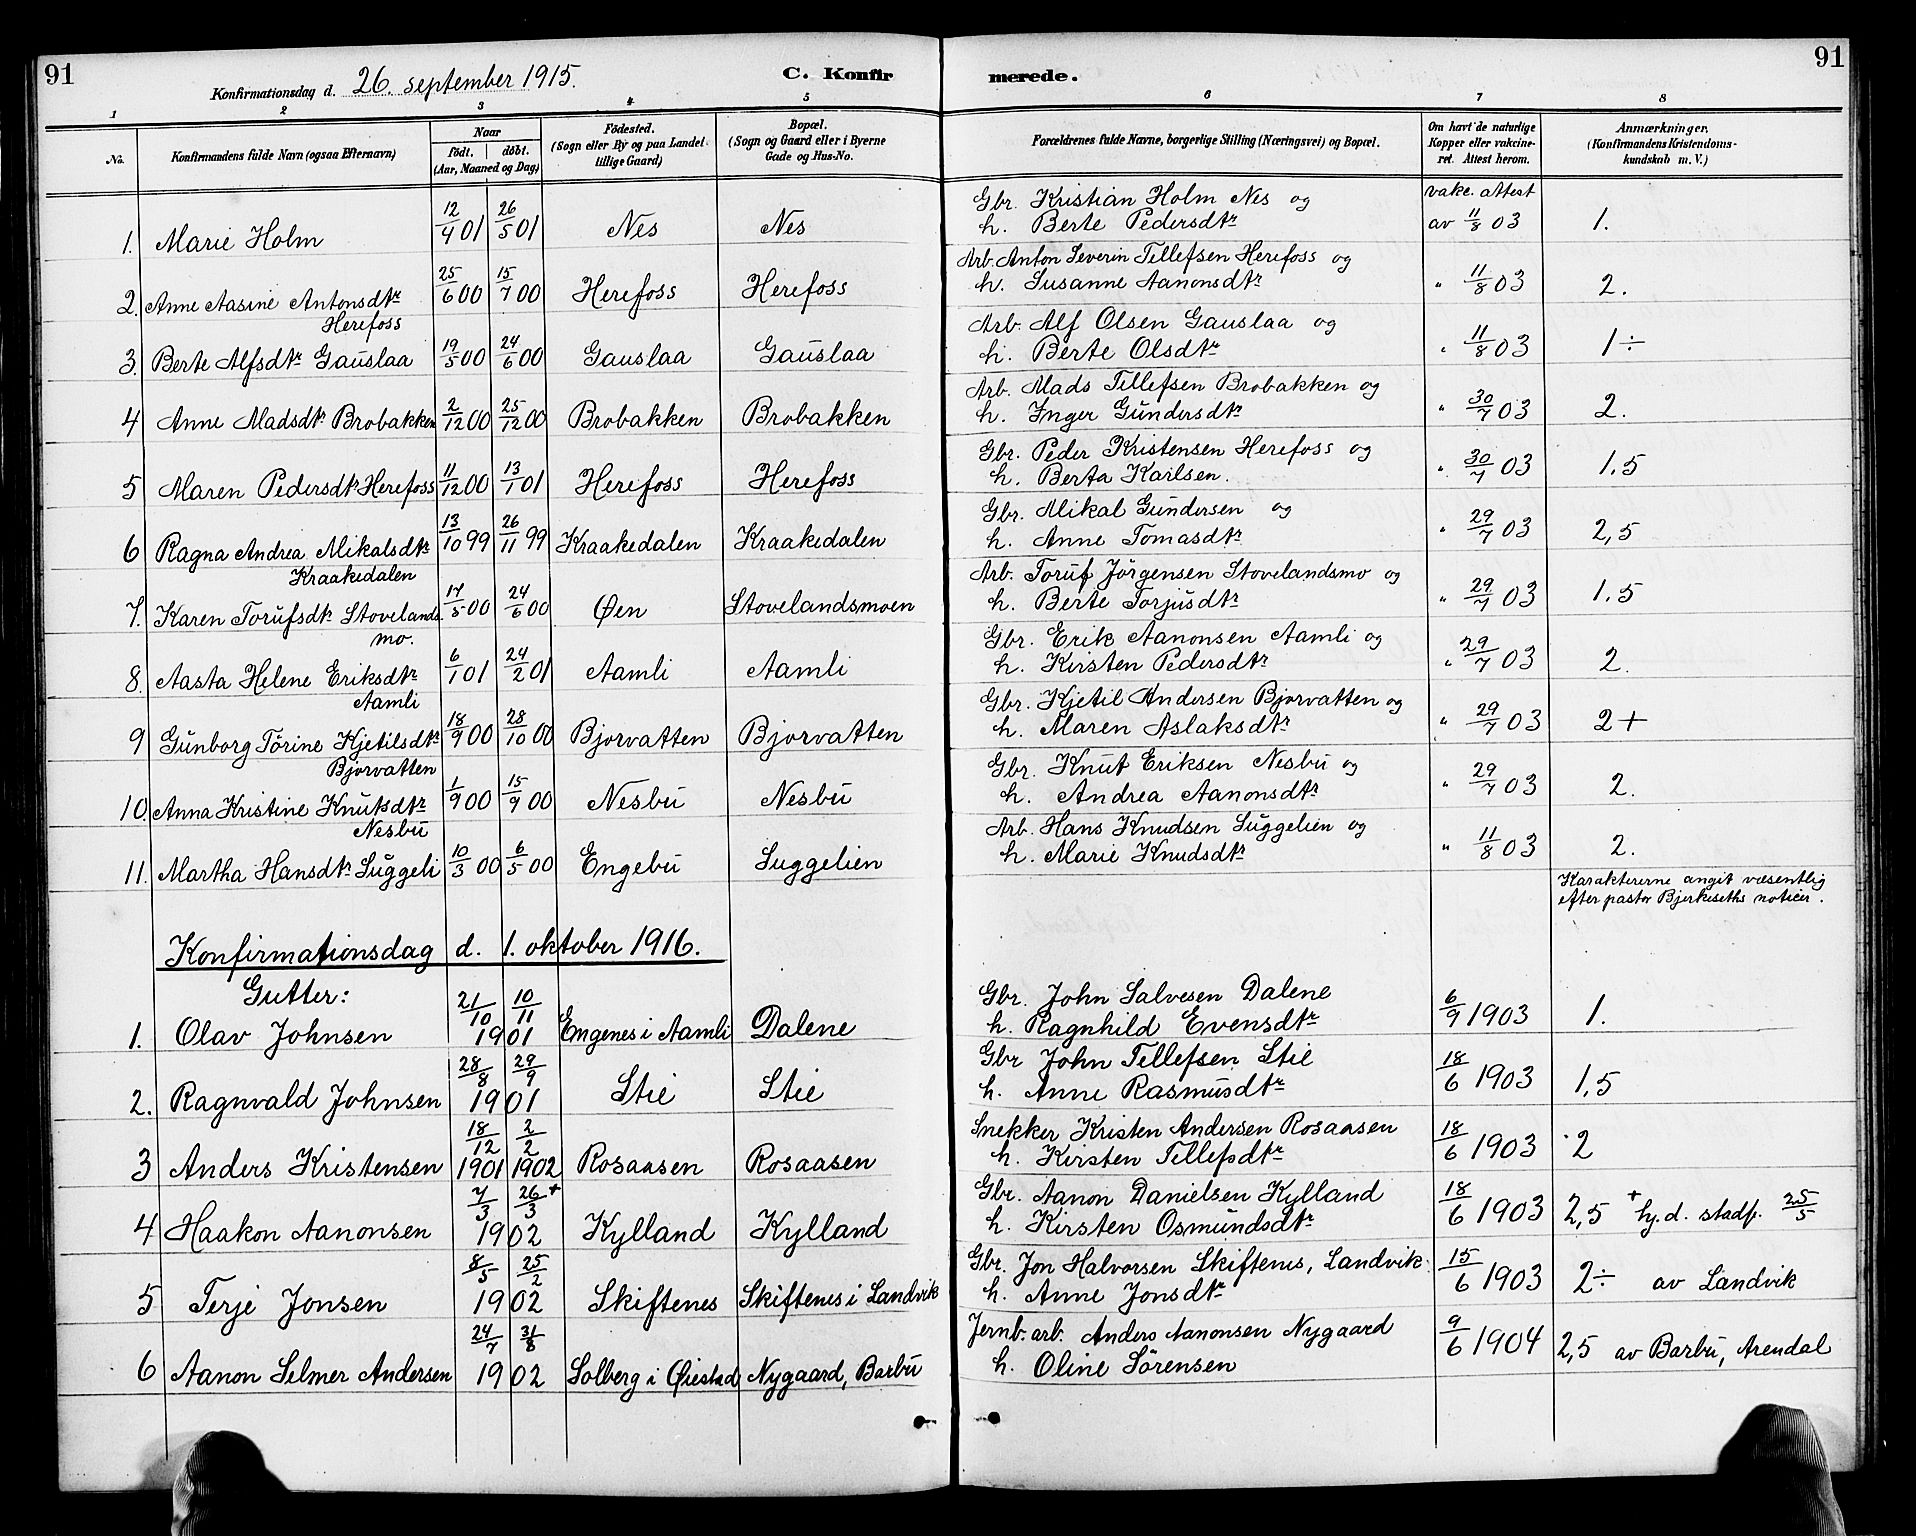 91
Konfirmationsdag d. 26. september 1915.
C. Konfirmerede.
91
1 2 3 4 5 6 7 8
No.
Konfirmandens fulde Navn (ogsaa Efternavn)
Naar
födt. döbt.
(Aar, Maaned og Dag)
Födested.
(Sogn eller By og paa Landet tillige Gaard)
Bopæl.
(Sogn og Gaard eller i Byerne
Gade og Hus-No.
Forældrenes fulde Navne, borgerlige Stilling (Næringsvei) og Bopæl.
Om havt de naturlige
Kopper eller vakcineret. Attest herom.
Anmærkninger.
(Konfirmandens Kristendomskundskab m. V.)
1. Marie Holm 12/4 01 26/5 01 Nes Nes Gbr. Kristian Holm Nes og h. Berte Pedersdtr vakc. attest av 11/8 03 1.
2. Anne Aasine Antonsdtr Herefoss 25/6 00 15/7 00 Herefoss Herefoss Arb. Anton Severin Tellefsen Herefoss og h. Susanne Aanonsdtr " 11/8 03 2.
3. Berte Alfsdtr Gauslaa 19/5 00 24/6 00 Gauslaa Gauslaa Arb. Alf Olsen Gauslaa og h. Berte Olsdtr " 11/8 03 1÷
4 Anne Madsdtr Brobakken 2/12 00 25/12 00 Brobakken Brobakken Arb. Mads Tellefsen Brobakken og h. Inger Gundersdtr " 30/7 03 2.
5 Maren Pedersdtr Herefoss 11/12 00 13/1 01 Herefoss Herefoss Gbr. Peder Kristensen Herefoss og h. Berta Karlsen. " 30/7 03 1.5
6 Ragna Andrea Mikalsdtr Kraakedalen 13/10 99 26/11 99 Kraakedalen Kraakedalen Gbr. Mikal Gundersen og h. Anne Tomasdtr " 29/7 03 2,5
7. Karen Torufsdtr Stovelandsmo. 17/5 00 24/6 00 Øen Stovelandsmoen Arb. Toruf Jørgensen Stovelandsmo og h. Berte Torjusdtr " 29/7 03 1.5
8. Aasta Helene Eriksdtr Aamli 6/1 01 24/2 01 Aamli Aamli Gbr. Erik Aanonsen Aamli og h. Kirsten Pedersdtr " 29/7 03 2.
9 Gunborg Torine Kjetilsdtr Bjorvatten 18/9 00 28/10 00 Bjorvatten Bjorvatten Gbr. Kjetil Andersen Bjorvatten og h. Maren Aslaksdtr " 29/7 03 2+
10 Anna Kristine Knutsdtr Nesbu 1/9 00 15/9 00 Nesbu Nesbu Gbr. Knut Eriksen Nesbu og h. Andrea Aanonsdtr " 29/7 03 2.
11. Martha Hansdtr Suggeli 10/3 00 6/5 00 Engebu Suggelien Arb. Hans Knudsen Suggelien og h. Marie Knudsdtr " 11/8 03 2.
Karaktererne angit væsentlig
efter pastor Bjerkeseths noticer.
Konfirmationsdag d. 1. oktober 1916.
Gutter:
1. Olav Johnsen 21/10 10/11 1901 Engenes i Aamli Dalene Gbr. John Salvesen Dalene h. Ragnhild Evensdtr 6/9 1903 1.
2. Ragnvald Johnsen 28/8 29/9 1901 Stie Stie Gbr John Tellefsen Stie h. Anne Rasmusdtr 18/6 1903 1,5
3 Anders Kristensen 18/12 1901 2/2 1902 Rosaasen Rosaasen Snekker Kristen Andersen Rosaasen h. Kirsten Tellefsdtr 18/6 1903 2
4 Haakon Aanonsen 7/3 26/3 + 1902 Kylland Kylland Gbr. Aanon Danielsen Kylland h. Kirsten Osmundsdtr 18/6 1903 2,5 + hj.d. stadf. 25/5
5 Terje Jonsen 8/5 25/2 1902 Skiftenes Skiftenes i Landvik Gbr. Jon Halvorsen Skiftenes, Landvik. h. Anne Jonsdtr 15/6 1903 2÷ av Landvik
6 Aanon Selmer Andersen 24/7 31/8 1902 Solberg i Øiestad Nygaard, Barbu Jernb. arb. Anders Aanonsen Nygaard h. Oline Sörensen 9/6 1904 2,5 av Barbu, Arendal